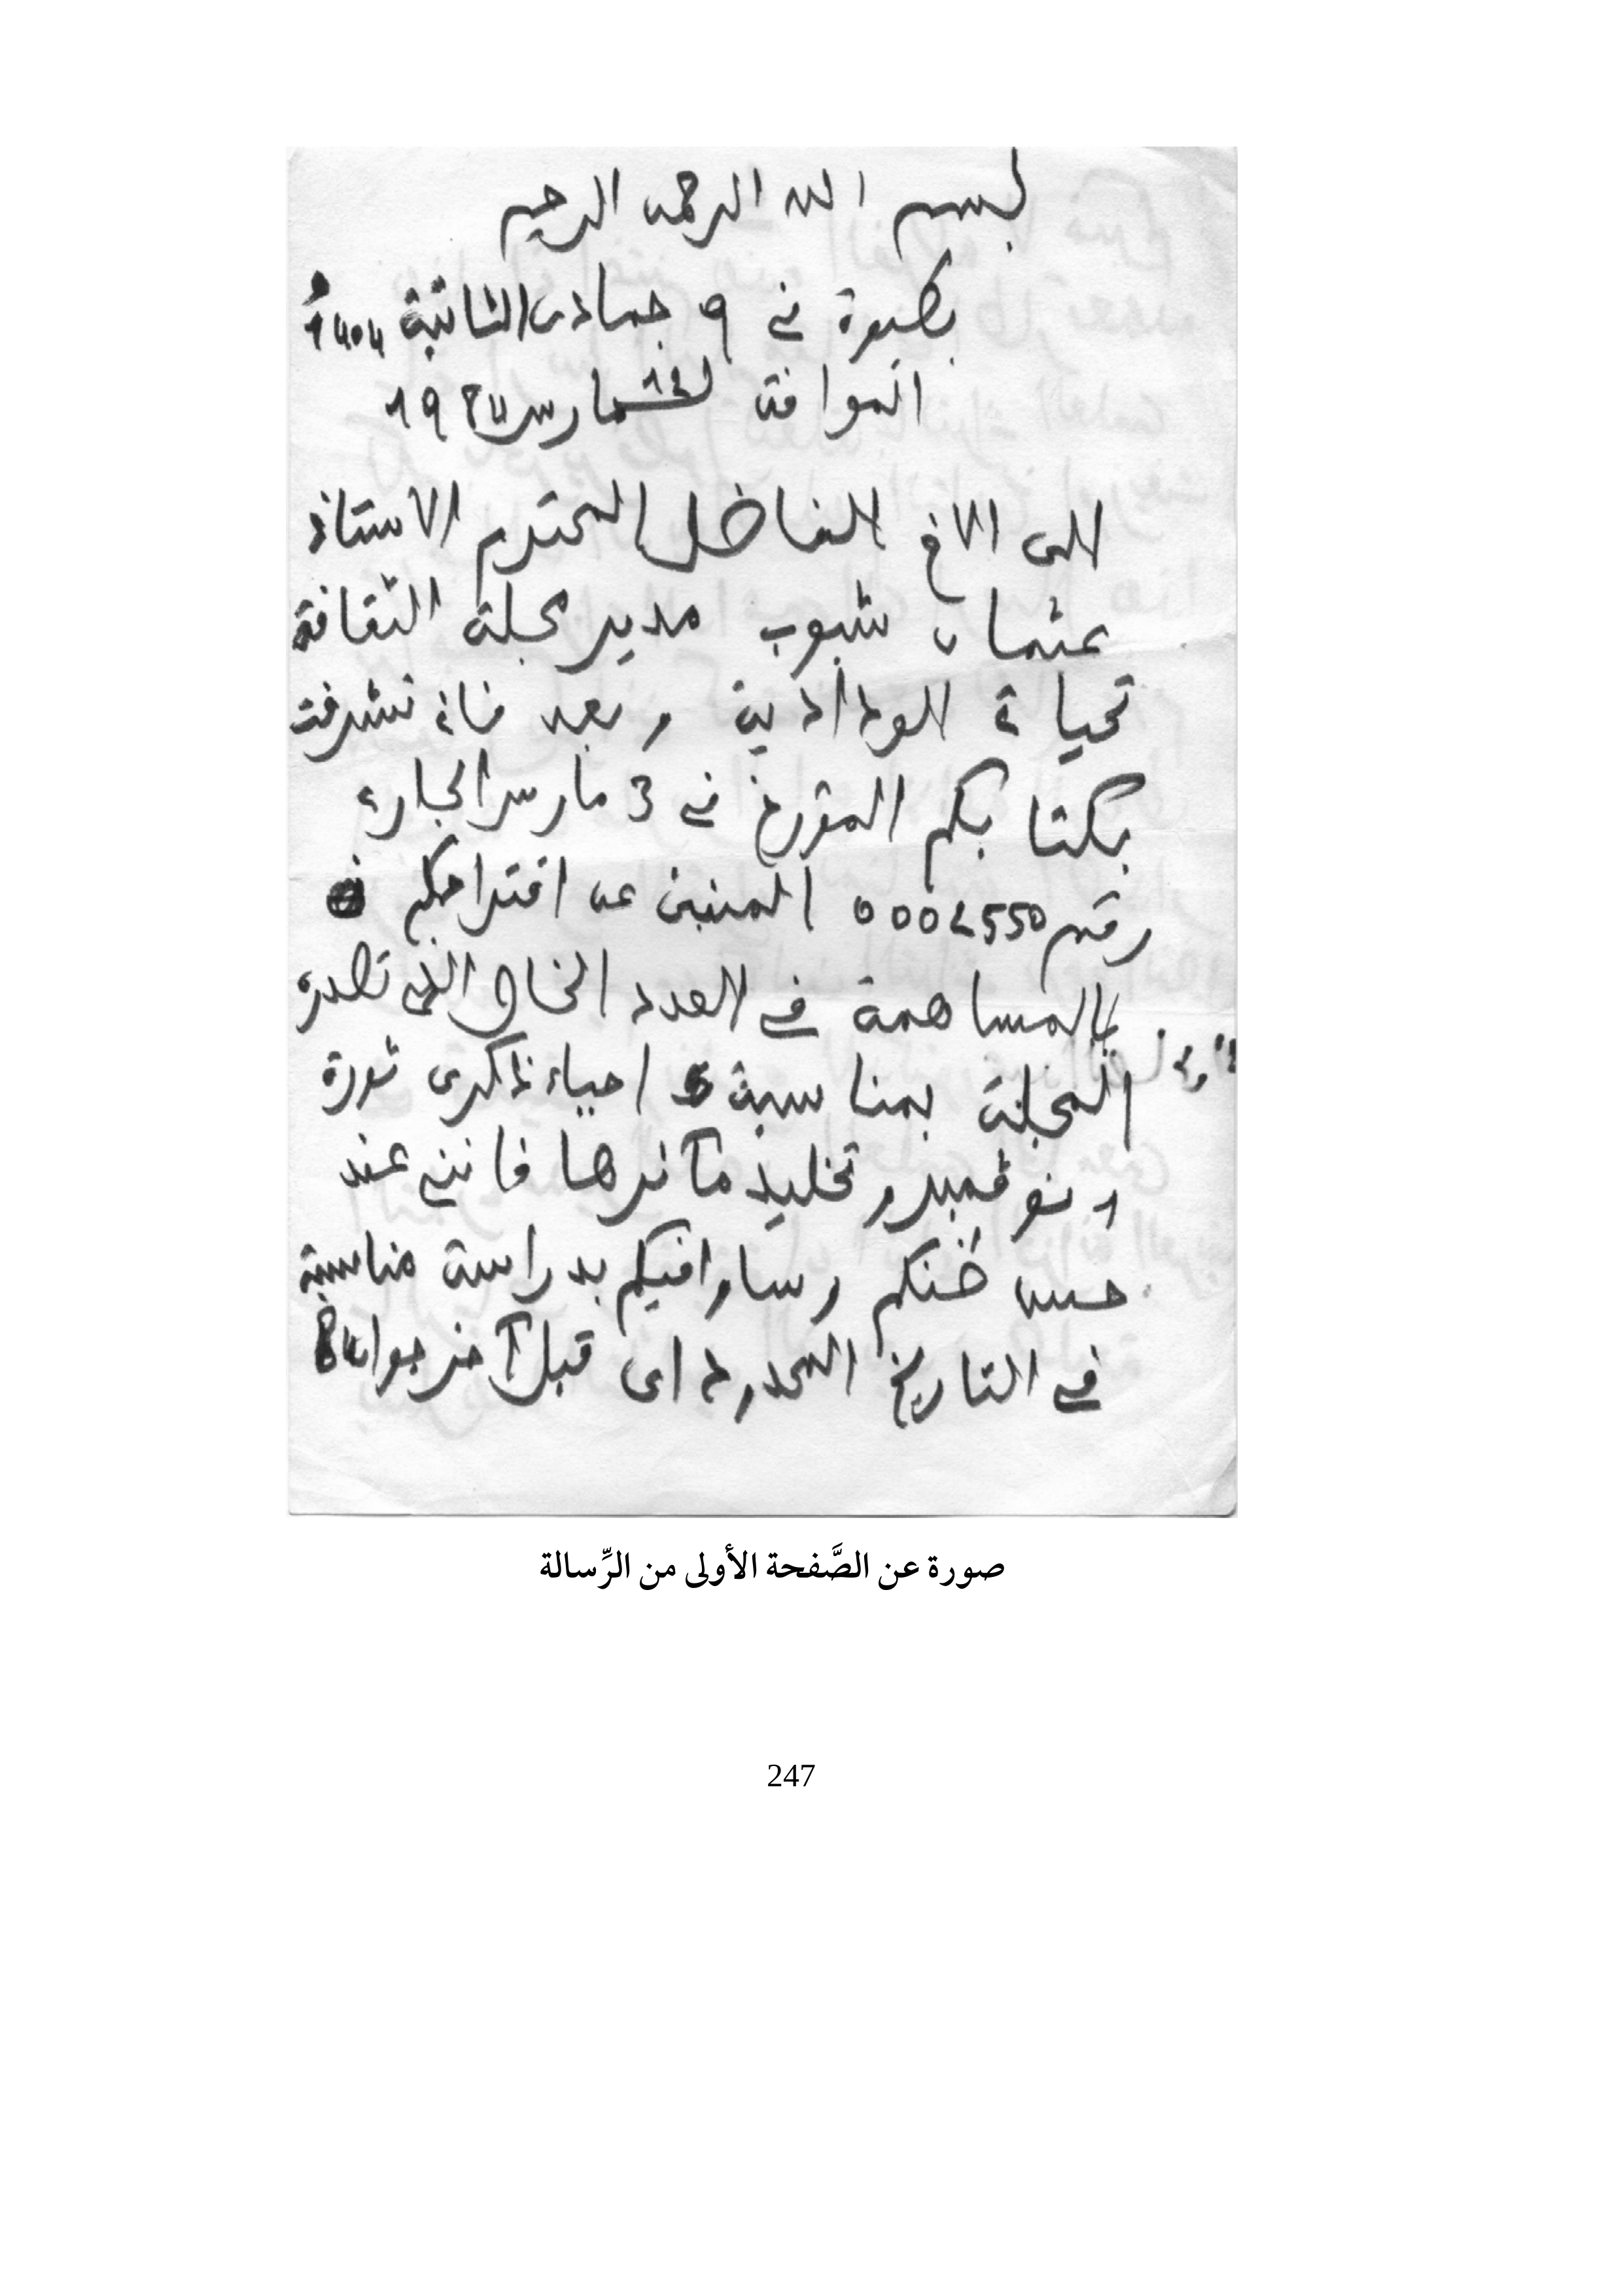 بسم الله الرحمن الرحيم
في 9 جمادى الثانية 1404
الموافق مارس 1984
الى الاخ الفاضل المحترم الاستاذ
عثمان شبوب مدير مجلة الثقافة
تحياتي الودادية وبعد فاني تشرفت
بكتابكم المؤرخ في 3 مارس الجاري
رقم 0002550 المنبئ عن اقتراحكم
بالمساهمة في العدد الخاص الذي تصدره
المجلة بمناسبة احياء ذكرى ثورة
نوفمبر وتخليد مآثرها فانني عند
حسن ظنكم وساوافيكم بدراسة مناسبة
في التاريخ المحدود اى قبل آخر جوان 84
صورة عن الصَّفحة الأولى من الرِّسالة
247